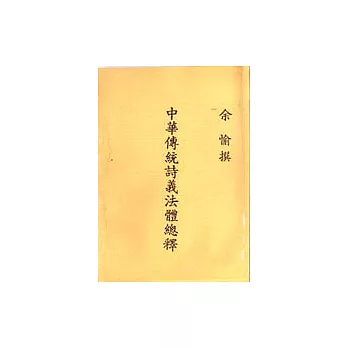 余愉撰
中華傳統詩義法體總釋